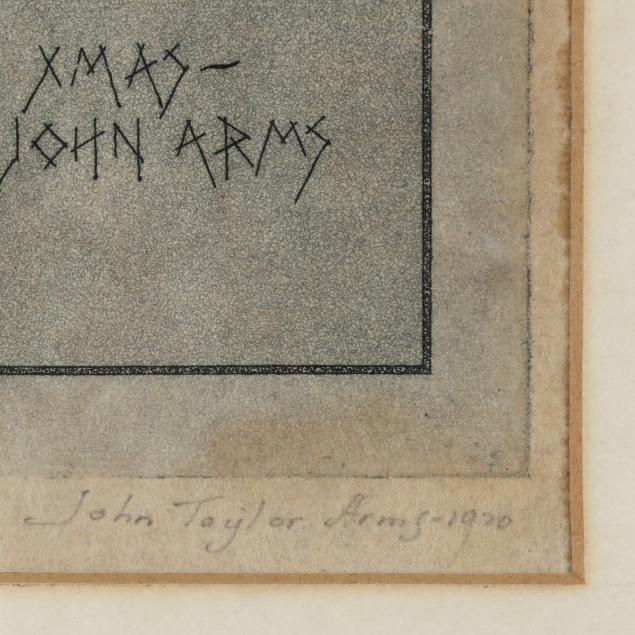 XMAS—
JOHN ARMS
John Taylor Arms-1920